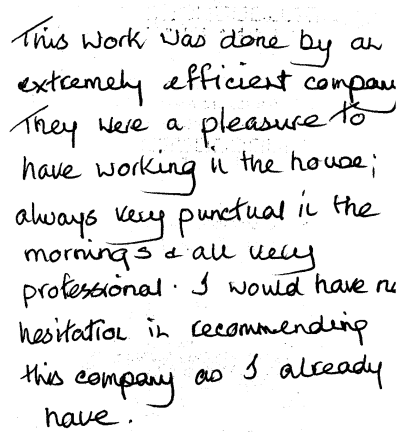 This work was done by an
extremely efficient company
They were a pleasure to
have working in the house;
always very punctual in the
mornings & all very
professional. I would have no
hesitation in recommending
this company as I already
have.